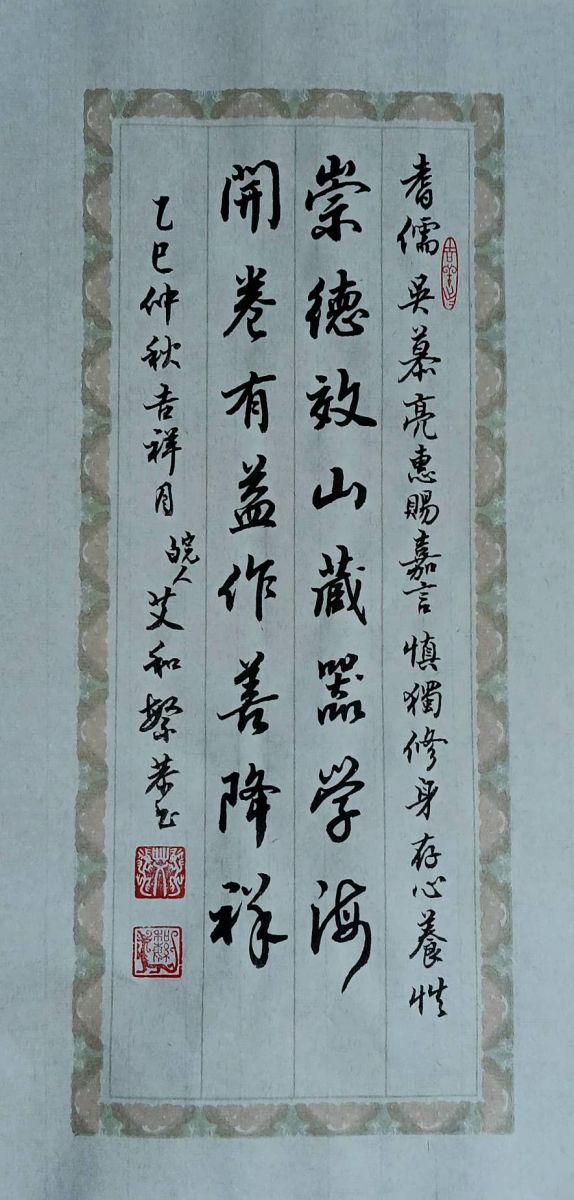 耆儒吳慕亮惠賜嘉言慎獨修身存心養性
崇德效山藏器学海
開卷有益作善降祥
乙巳仲秋吉祥月皖人艾和繁恭书